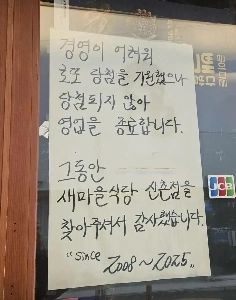 경영이 어려워
로또 당첨을 기원했으나
당첨되지 않아
영업을 종료합니다.
그동안
새마을식당 신촌점을
찾아주셔서 감사했습니다.
"since 2008~2025"
JCB